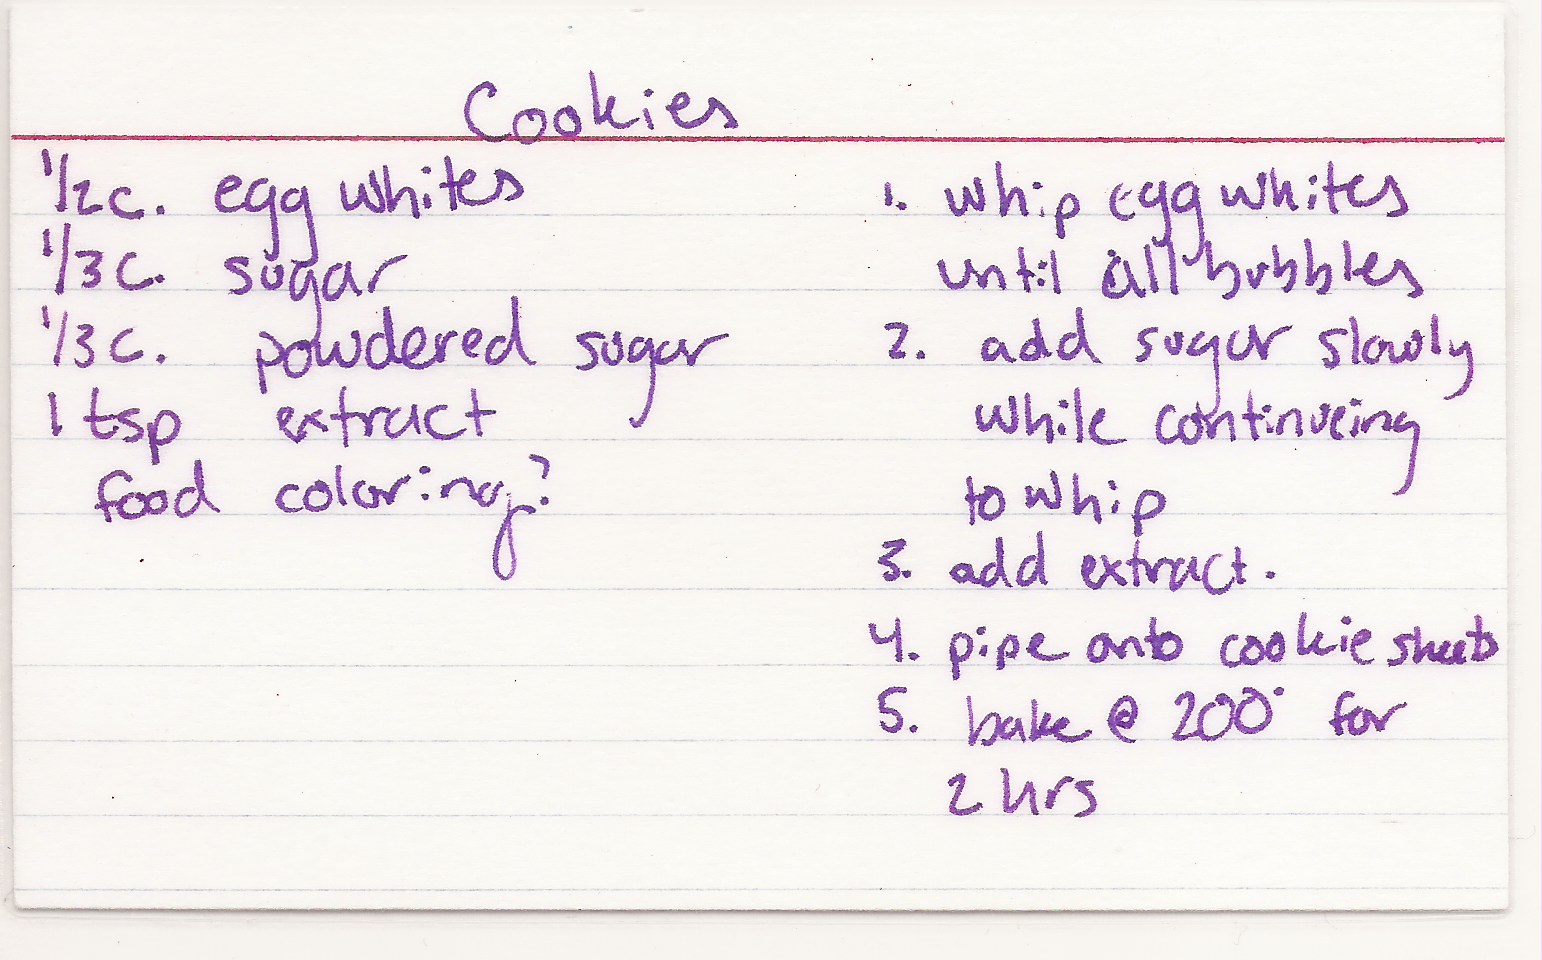 Cookies
1/2 c. egg whites
1/3 c. sugar
1/3 c. powdered sugar
1 tsp extract
food coloring?
1. whip egg whites
until all bubbles
2. add sugar slowly
while continueing
to whip
3. add extract.
4. pipe onto cookie sheets
5. bake @ 200° for
2 hrs